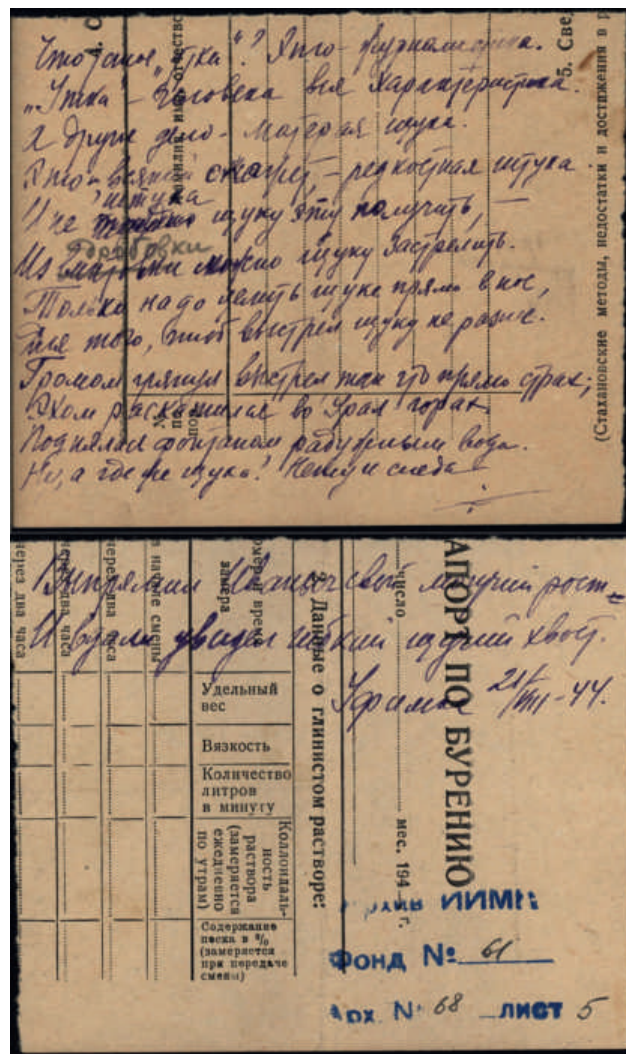 Что такое „утка“? Это - журналистика.
„Утка“ - человека вся характеристика.
А другое дело - матёрая щука.
Это - всякий скажет, - редкостная штука
штука
И не щуку эту получить, —
дробовки
Из можно щуку застрелить.
Только надо метить щуке прямо в нос,
Для того, чтоб выстрел щуку не разнес.
Громом грянул выстрел так что прямо страх;
Эхом раскатилась во Урал горах
Поднялась фонтаном радужным вода.
Ну, а где же щука? Нету и следа
А. О
фамилия, имя, отчество
5. Све
(Стахановские методы, недостатки и достижения в р
Выпрямил Иваныч свой могучий рост
И вдали увидел гибкий щучий хвост.
Уфимка 21/VIII-44.
АПОРТ ПО БУРЕНИЮ
число мес. 194 г.
Данные о глинистом растворе:
замера
через два часа
через два часа
через два часа
в начале смены
Удельный
вес
Вязкость
Количество
литров
в минуту
Коллоидаль-
ность
раствора
(замеряется
ежедневно
по утрам)
Содержание
песка в %
(замеряется
при передаче
смены)
Архив ИИМК
Фонд № 61
Арх. № 68 лист 5